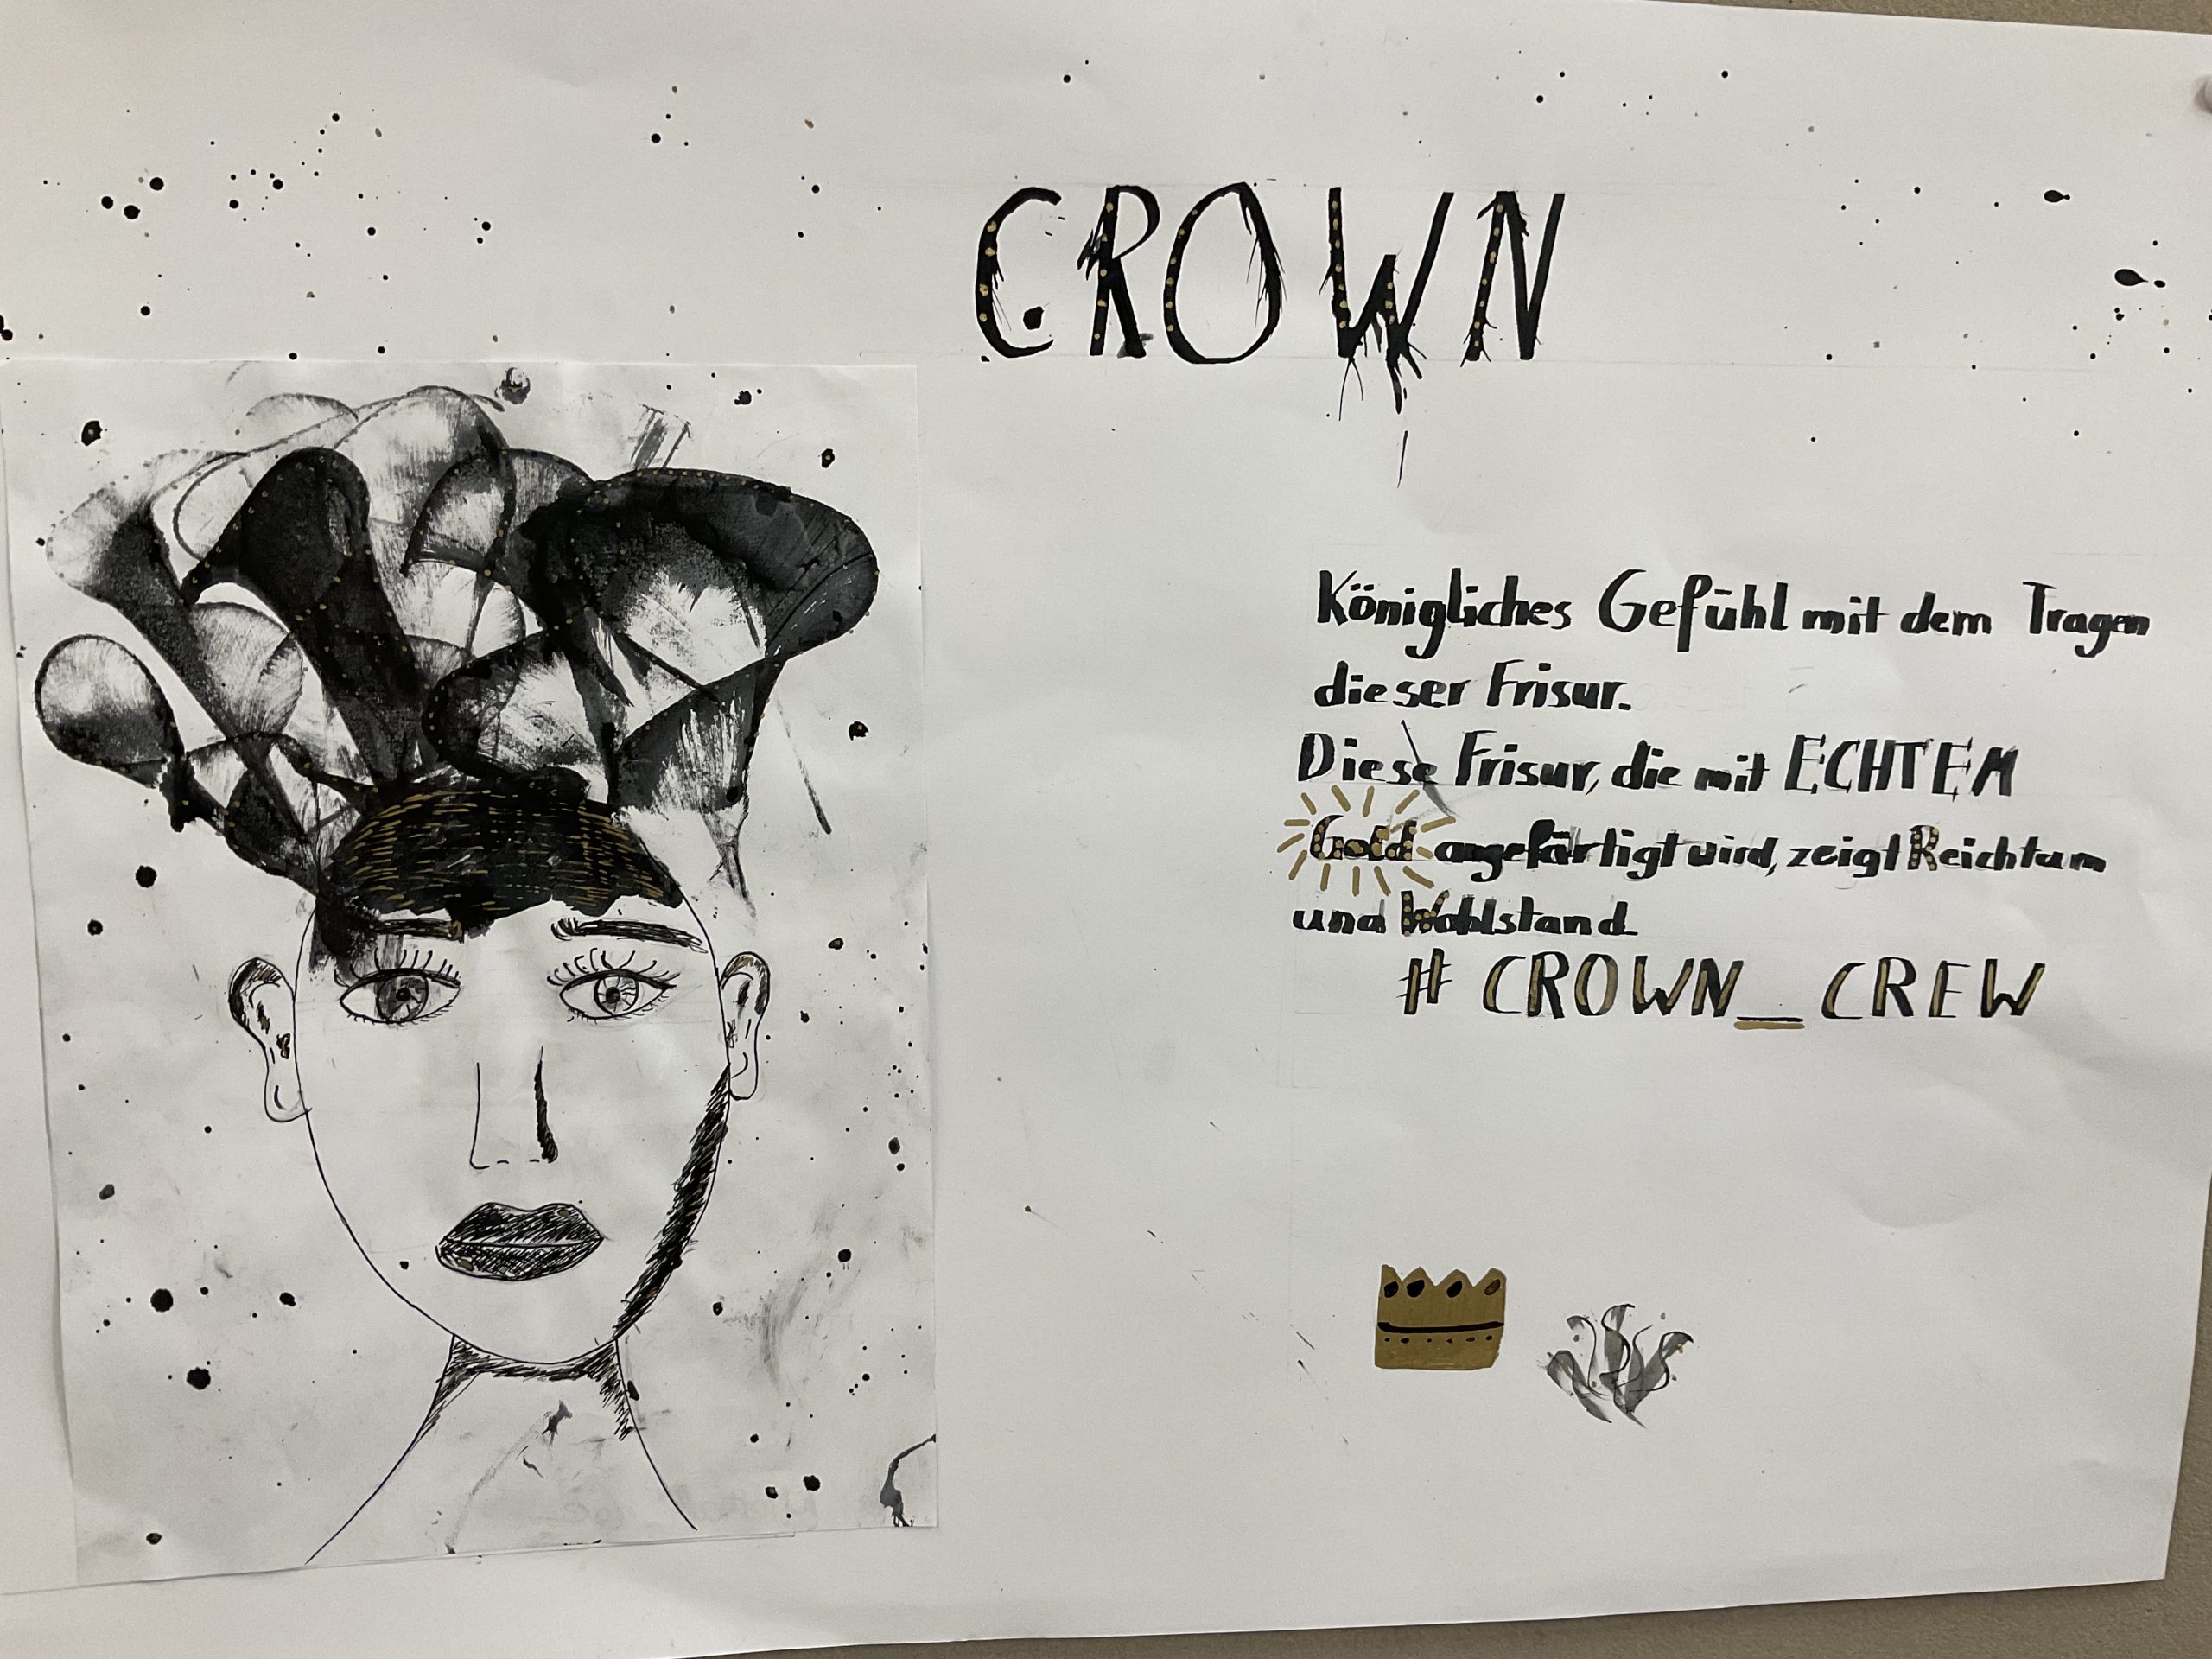 CROWN
Königliches Gefühl mit dem Tragen
dieser Frisur.
Diese Frisur, die mit ECHTEM
Gold angefärtigt wird, zeigt Reichtum
und Wohlstand
# CROWN_CREW